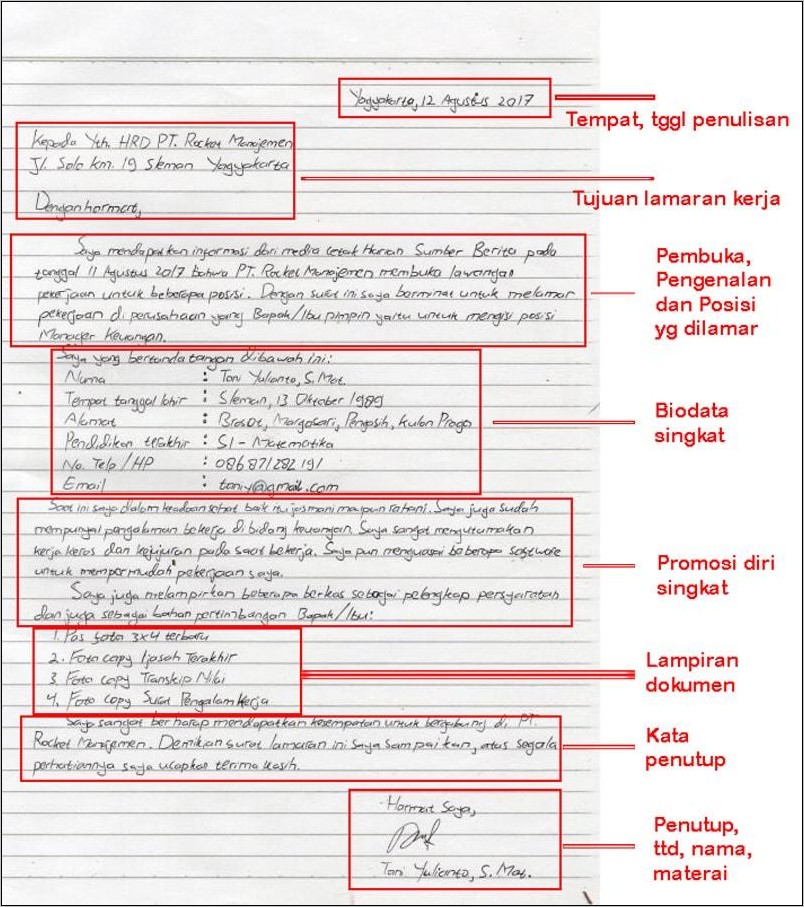 Yogyakarta, 12 Agustus 2017
Tempat, tggl penulisan
Kepada Yth. HRD PT. Rocket Manajemen
Jl. Solo km. 19 Sleman Yogyakarta
Tujuan lamaran kerja
Dengan hormat,
Saya mendapatkan informasi dari media cetak Harian Sumber Berita pada
tanggal 11 Agustus 2017 bahwa PT. Rocket Manajemen membuka lowongan
pekerjaan untuk beberapa posisi. Dengan surat ini saya berminat untuk melamar
pekerjaan di perusahaan yang Bapak/Ibu pimpin yaitu untuk mengisi posisi
Manager Keuangan.
Pembuka,
Pengenalan
dan Posisi
yg dilamar
Saya yang bertanda tangan dibawah ini:
Nama : Toni Yulianto, S. Mat.
Tempat tanggal lahir : Sleman, 13 Oktober 1989
Alamat : Brosot, Margosari, Pengasih, Kulon Progo
Pendidikan terakhir : S1 - Matematika
No. Telp / HP : 086871282191
Email : toniy@gmail.com
Biodata
singkat
Saat ini saya dalam keadaan sehat baik itu jasmani maupun rohani. Saya juga sudah
mempunyai pengalaman bekerja dibidang keuangan. Saya sangat mengutamakan
kerja keras dan kejujuran pada saat bekerja. Saya pun menguasai beberapa software
untuk mempermudah pekerjaan saya.
Saya juga melampirkan beberapa berkas sebagai pelengkap persyaratan
dan juga sebagai bahan pertimbangan Bapak/Ibu:
Promosi diri
singkat
1. Pas foto 3x4 terbaru
2. Foto copy Ijasah Terakhir
3. Foto copy Transkip Nilai
4. Foto copy Surat Pengalam Kerja
Lampiran
dokumen
Saya sangat berharap mendapatkan kesempatan untuk bergabung di PT.
Rocket Manajemen. Demikian surat lamaran ini saya sampaikan, atas segala
perhatiannya saya ucapkan terima kasih.
Kata
penutup
Hormat Saya,
Toni Yulianto, S. Mat.
Penutup,
ttd, nama,
materai